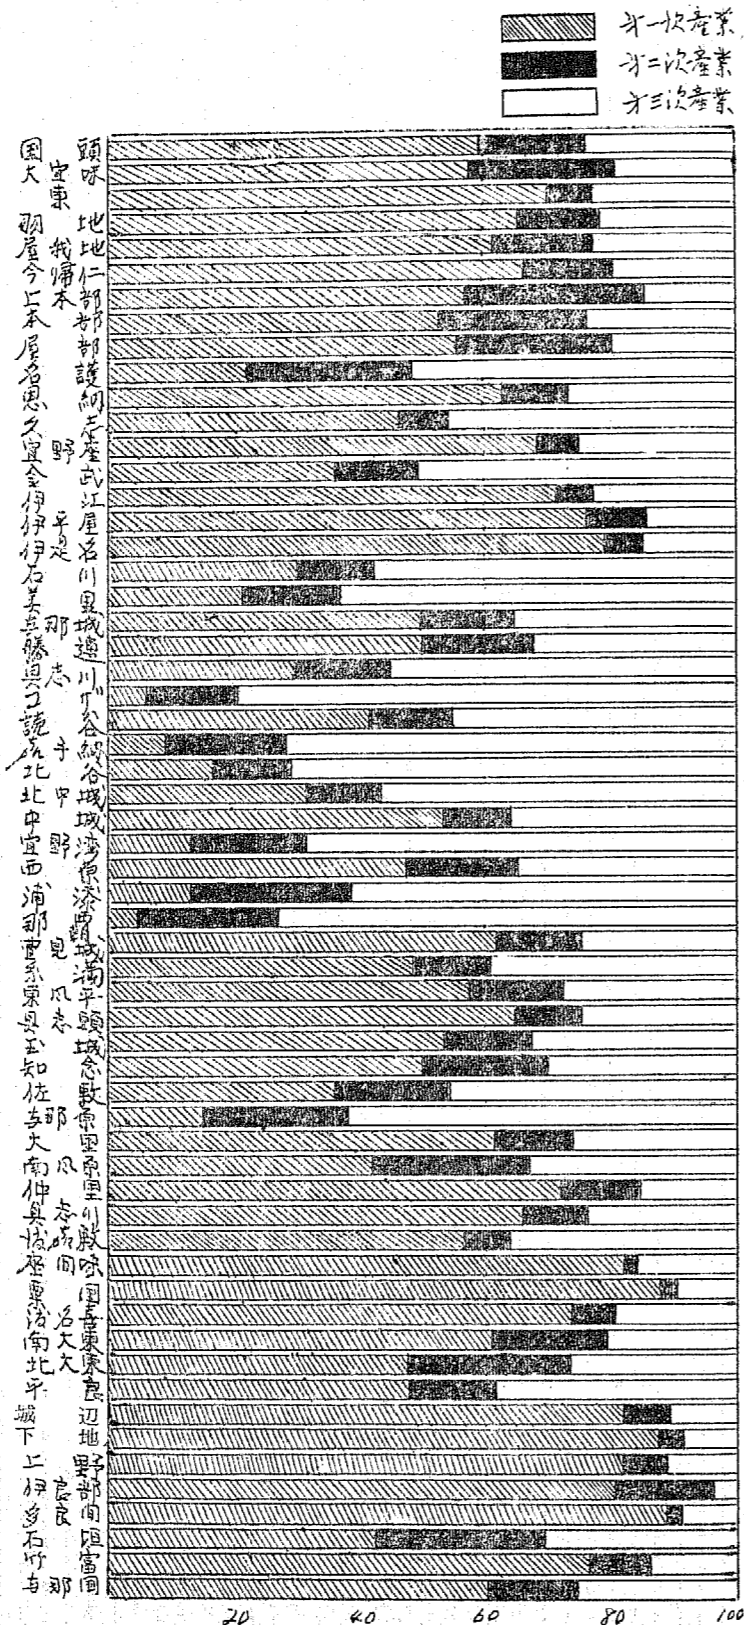 才一次産業
才二次産業
才三次産業
国頭
大宜味
東
羽地
屋我地
今帰仁
上本部
本部
屋部
名護
恩納
久志
宜野座
金武
伊江
伊平屋
伊是名
石川
美里
与那城
勝連
具志川
コザ
読谷
嘉手納
北谷
北中城
中城
宜野湾
西原
浦添
那覇
豊見城
糸満
東風平
具志頭
玉城
知念
佐敷
与那原
大里
南風原
仲里
具志川
渡嘉敷
座間味
粟国
渡名喜
南大東
北大東
平良
城辺
下地
上野
伊良部
多良間
石垣
竹富
与那国
20 40 60 80 100